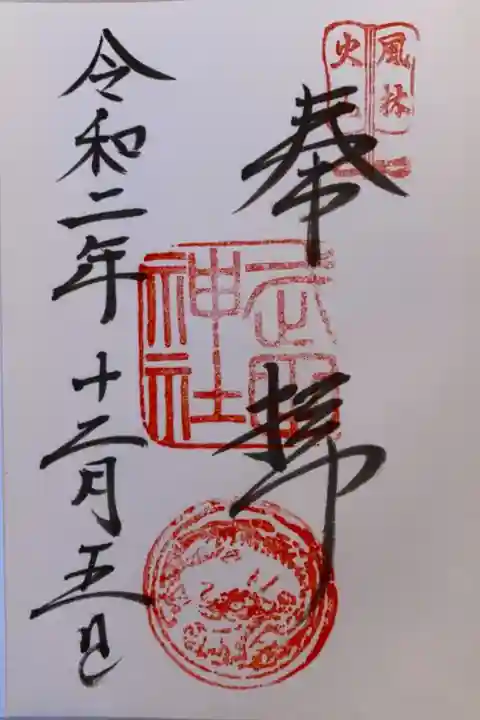 風林
火
奉拝
武田
神社
令和二年十二月五日